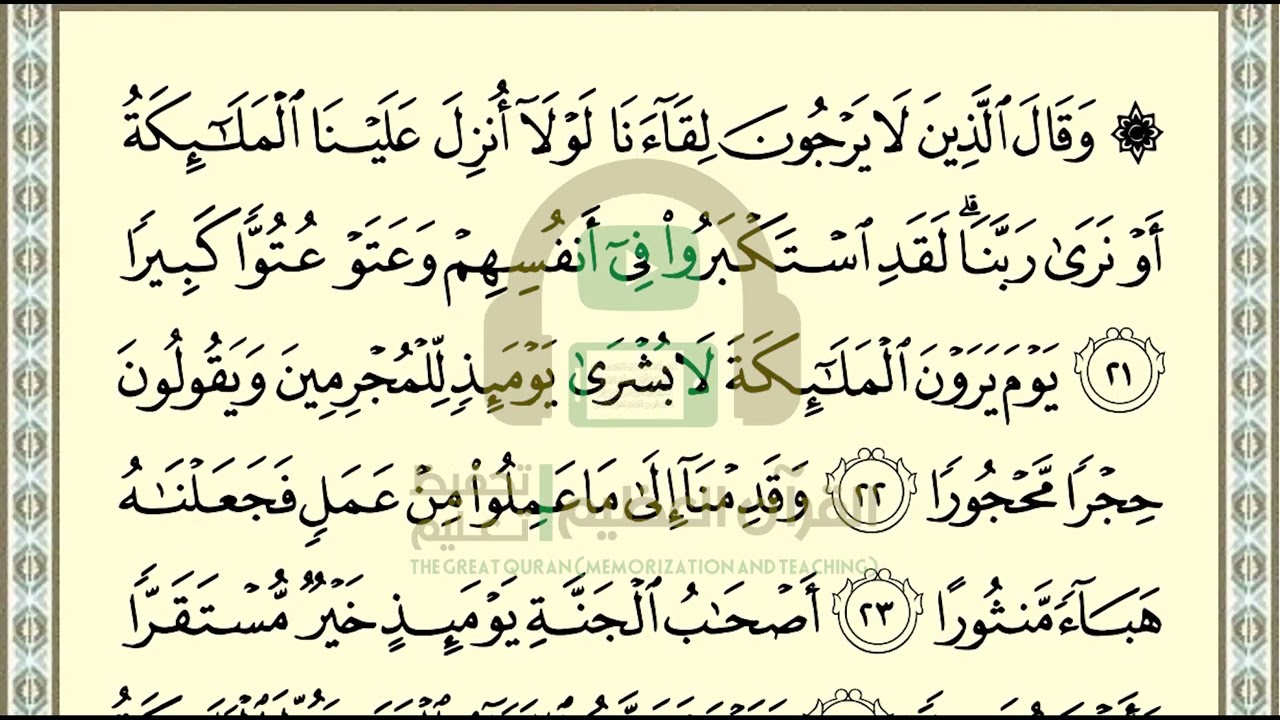 ۞ وَقَالَ ٱلَّذِينَ لَا يَرْجُونَ لِقَآءَنَا لَوْلَآ أُنزِلَ عَلَيْنَا ٱلْمَلَـٰٓئِكَةُ
أَوْ نَرَىٰ رَبَّنَا ۗ لَقَدِ ٱسْتَكْبَرُوا۟ فِىٓ أَنفُسِهِمْ وَعَتَوْ عُتُوًّا كَبِيرًا
٢١ يَوْمَ يَرَوْنَ ٱلْمَلَـٰٓئِكَةَ لَا بُشْرَىٰ يَوْمَئِذٍ لِّلْمُجْرِمِينَ وَيَقُولُونَ
حِجْرًا مَّحْجُورًا ٢٢ وَقَدِمْنَآ إِلَىٰ مَا عَمِلُوا۟ مِنْ عَمَلٍ فَجَعَلْنَـٰهُ
القرآن العظيم | تحفيظ و تعليم
THE GREAT QURAN (MEMORIZATION AND TEACHING)
هَبَآءً مَّنثُورًا ٢٣ أَصْحَـٰبُ ٱلْجَنَّةِ يَوْمَئِذٍ خَيْرٌ مُّسْتَقَرًّا